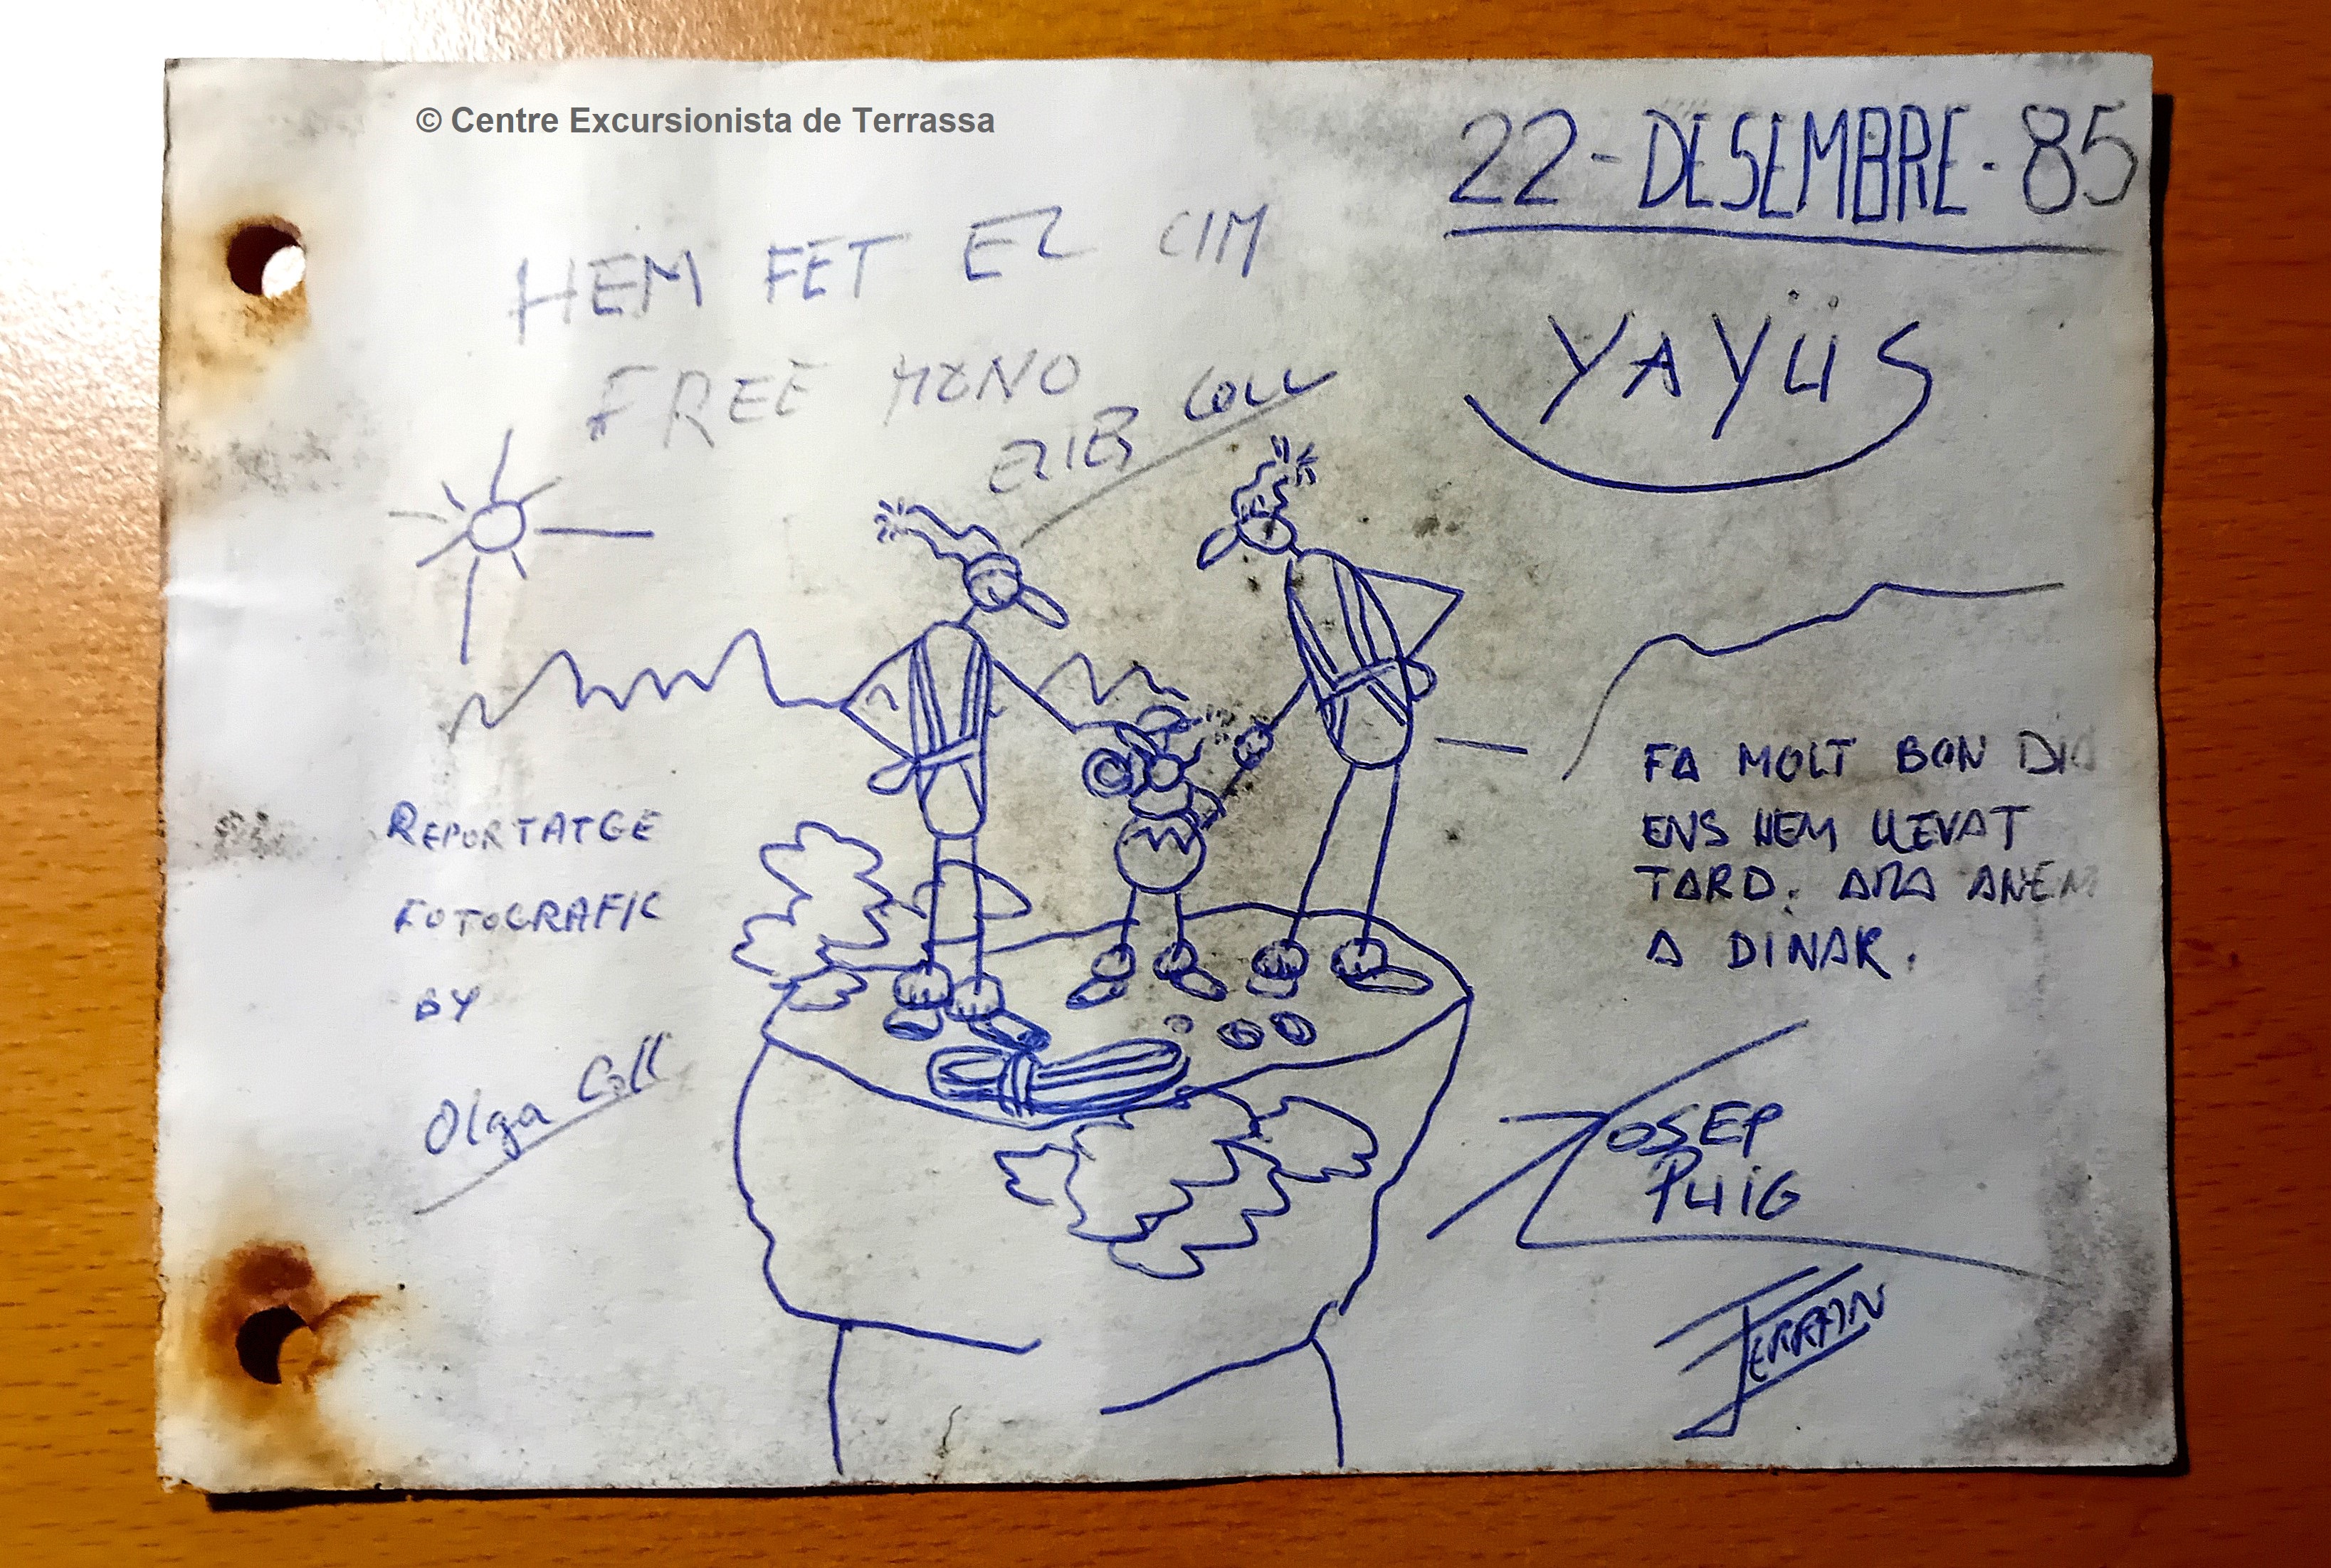 © Centre Excursionista de Terrassa
22-DESEMBRE-85
HEM FET EL CIM
FREE MONO
YAYÜS
Coll
FA MOLT BON DIA
ENS HEM LLEVAT
TARD. ARA ANEM
A DINAR.
REPORTATGE
FOTOGRAFIC
BY
Olga Coll
JOSEP
PUIG
FERRAN